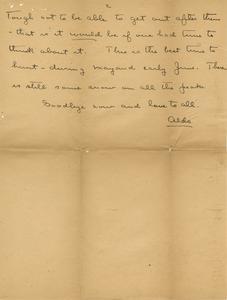 2
Tough not to be able to get out after them
- that is it would be if one had time to
think about it. This is the best time to
hunt - during May and early June. There
is still some snow on all the peaks
Goodbye now and love to all.
Aldo